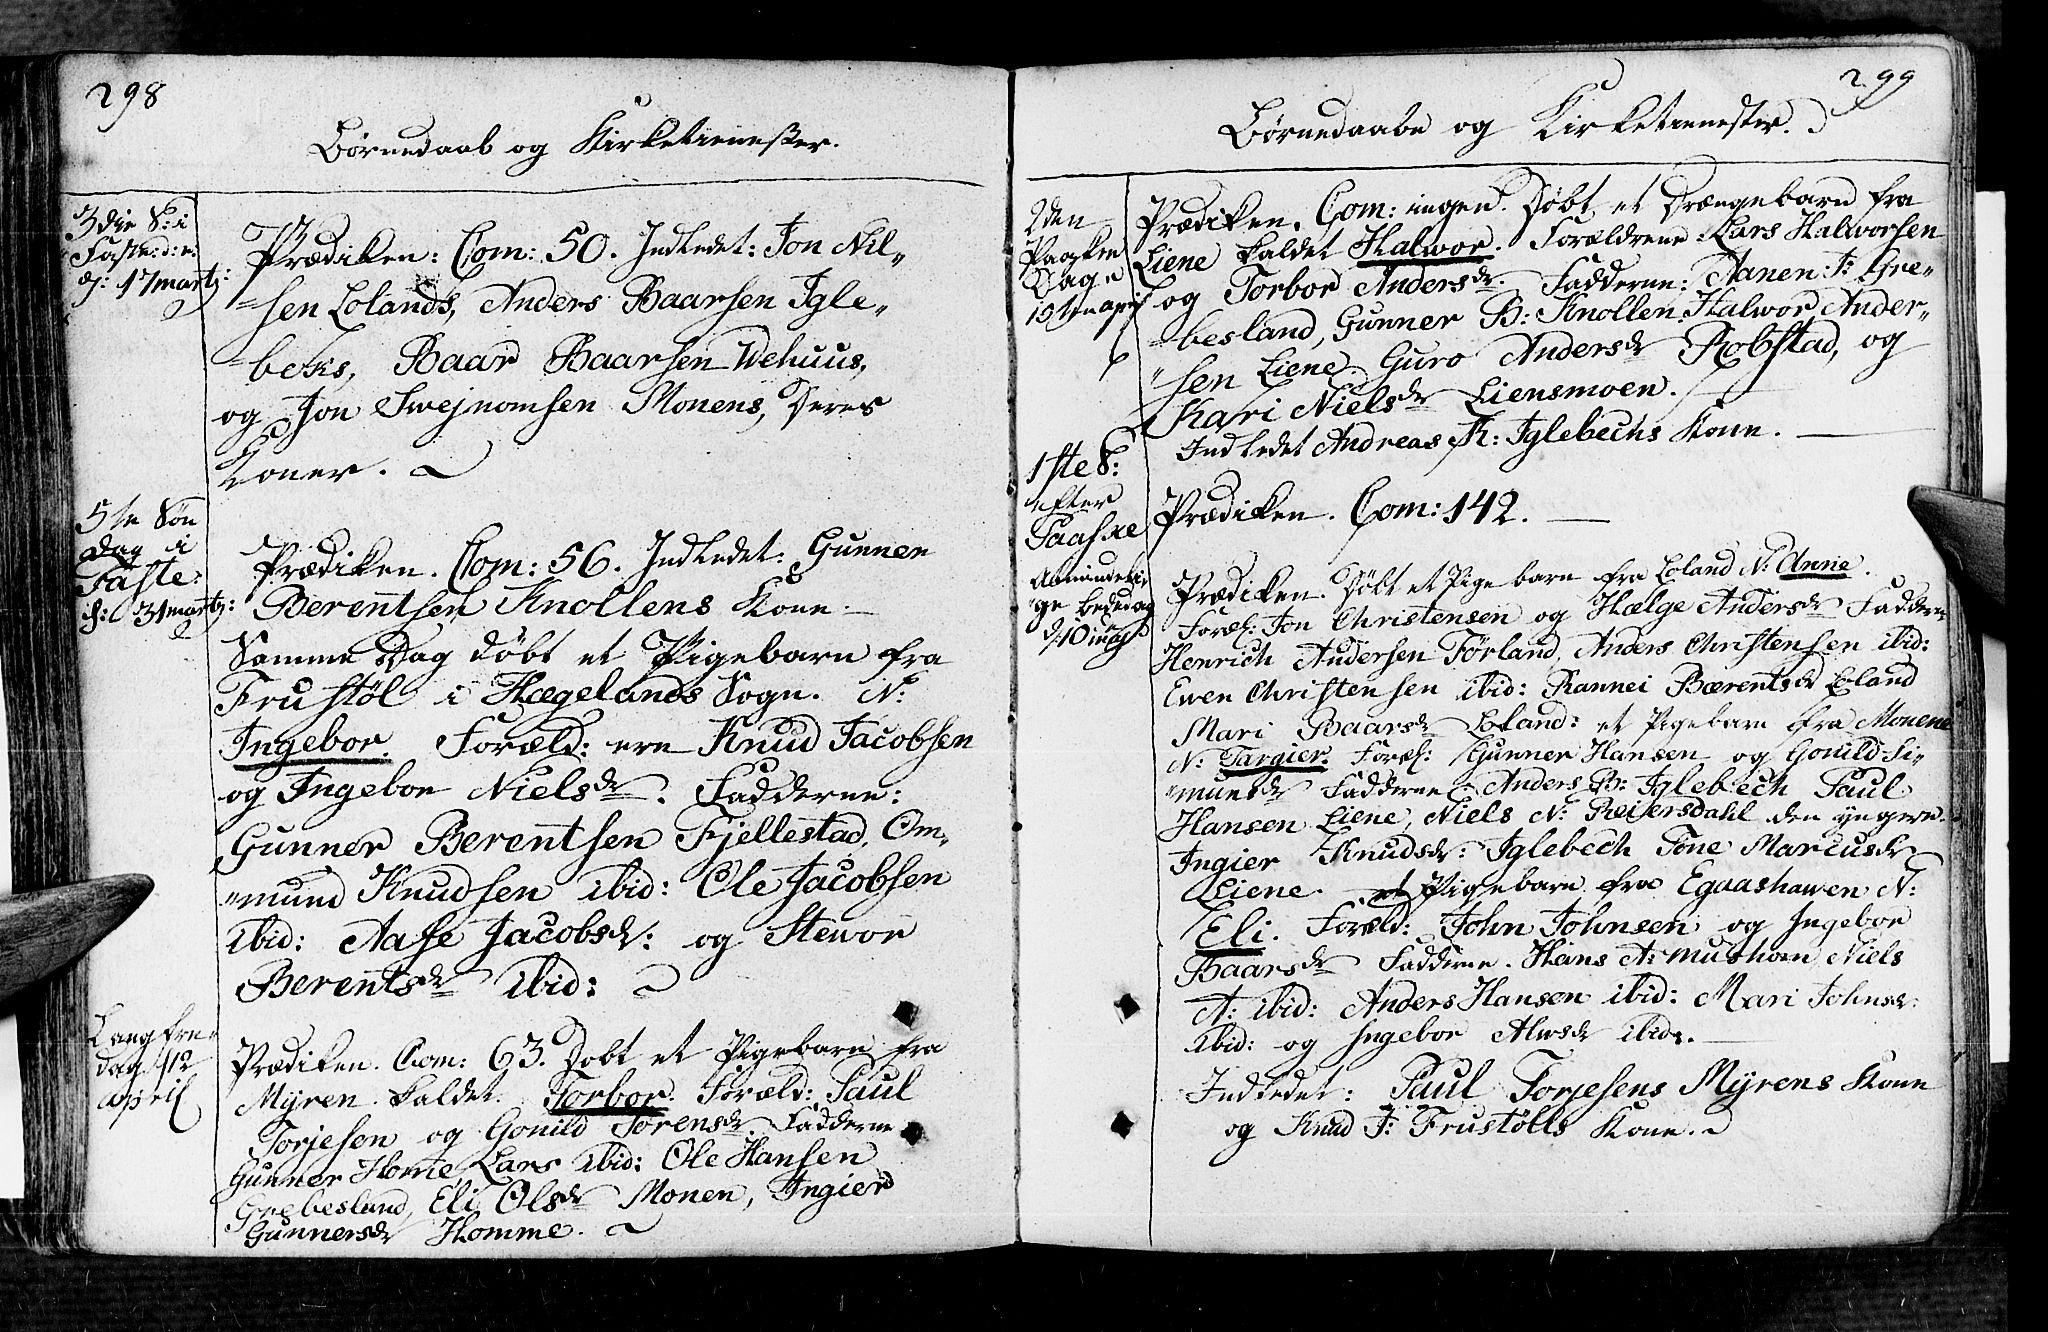 298
Børnedaab og Kirketienester.
3die S: i
Faste: d: n:
d: 17 martz:
Prædiken: Com: 50. Indledet: Jon Nil„
„sen Lolands, Anders Baarsen Igle„
„beks, Baar Baarsen Wehuus,
og Jon Swejnomsen Monens, Deres
Koner.
5te Søn
dag i
Faste:
d: 31 martz:
Prædiken. Com: 56. Indledet: Gunner
Berentsen Knollens Kone.
Samme Dag døbt et Pigebarn fra
Frustøl i Hægelands Sogn. N:
Ingebor. Foræld: ere Knud Jacobsen
og Ingebor Nielsdr. Fadderne:
Gunner Berentsen Fjellestad, Om„
„mund Knudsen ibid: Ole Jacobsen
ibid: Aase Jacobsdr: og Stewor
Berentsdr ibid:
Langfre„
dag d 12
april
Prædiken. Com: 63. Døbt et Pigebarn fra
Myren kaldet Torbor. Foræld: Paul
Torjesen og Gonild Torensdr. Fadderne
Gunner Home, Lars ibid: Ole Hansen
Grebesland, Eli Olsdr Monen, Ingier
Gunnersdr Homme.
299
Børnedaabe og Kirketienester.
2den
Paaske
Dag
15ten april
Prædiken. Com: ingen. Døbt et Drængebarn fra
Liene kaldet Halwor. Forældrene: Lars Halworsen
og Torbor Andersdr. Fadderne: Aanen I: Gre„
„besland, Gunner B: Knollen, Halwor Ander„
„sen Liene, Guro Andersdr Robstad, og
Kari Nielsdr Liensmoen.
Indledet Andreas K: Iglebechs Kone.
1ste S:
efter
Paaske
Prædiken. Com: 142.
Almindeli„
ge bededag
d 10 maj
Prædiken. Døbt et Pigebarn fra Loland N: Anne.
Foræl: Jon Christensen og Hælge Andersdr Fadderne
Henrich Andersen Førland, Anders Christensen ibid:
Ewen Christensen ibid: Rannei Bærentsdr Loland
Mari Baarsdr Loland: et Pigebarn fra Monene
N: Targier. Foræl: Gunner Hansen og Gonild Si„
„munsdr Fadderne: Anders B: Iglebech Paul
Hansen Liene, Niels N: Reiersdahl den yngere
Ingier Knudsdr: Iglebech Tone Marcusdr
Liene. et Pigebarn fra Egaashawen N:
Eli. Foræld: John Johnsen og Ingebor
Baarsdr Fadderne. Hans A: Mushom, Niels
A: ibid: Anders Hansen ibid: Mari Johnsdr:
ibid: og Ingebor Alwsdr ibid:
Indledet: Paul Torjesens Myrens Kone
og Knud I: Frustølls Kone.